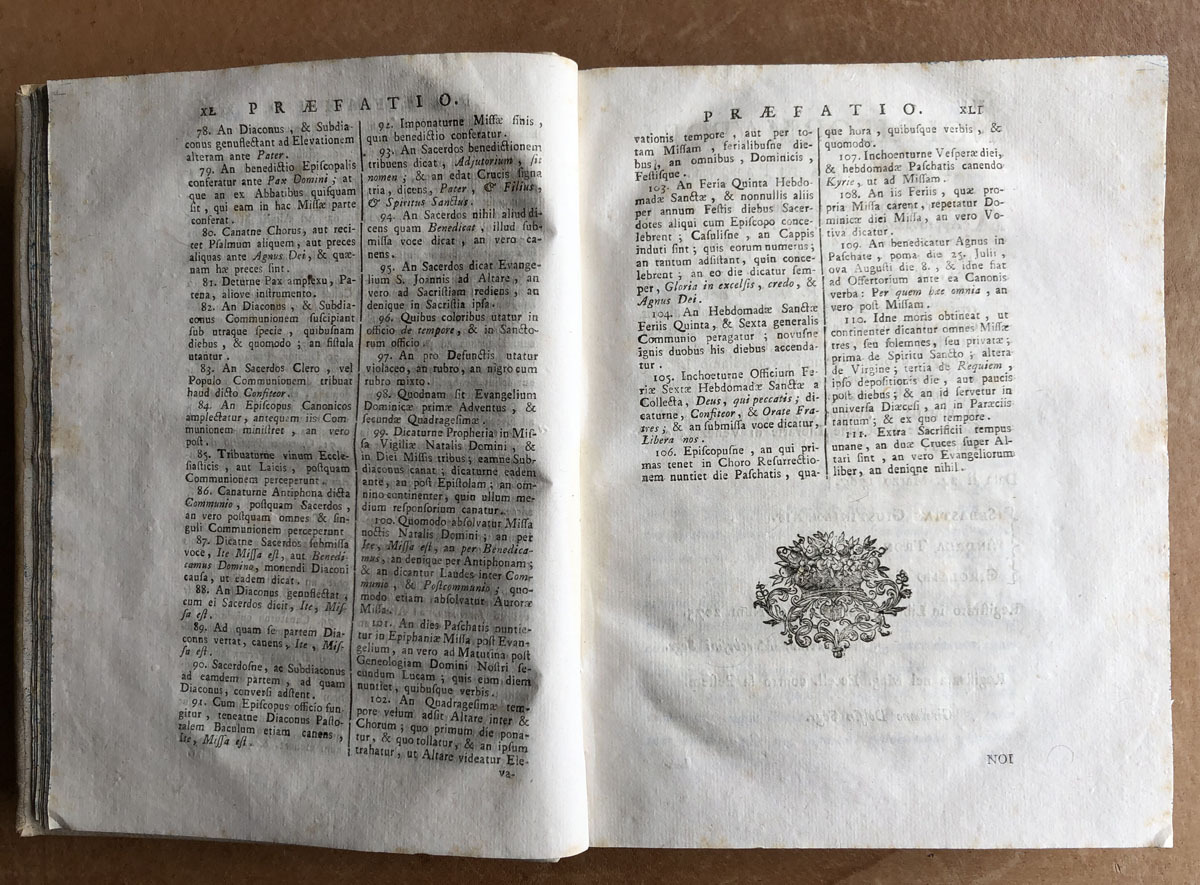 XL PRÆFATIO.
78. An Diaconus, & Subdia-
conus genuflectant ad Elevationem
alteram ante Pater.
79. An benedictio Episcopalis
conferatur ante Pax Domini; at
que an ex Abbatibus quisquam
sit, qui eam in hac Missæ parte
conferat.
80. Canatne Chorus, aut reci-
tet Psalmum aliquem, aut preces
aliquas ante Agnus Dei, & quæ-
nam hæ preces sint.
81. Deturne Pax amplexu, Pa-
tena, aliove instrumento.
82. An Diaconus, & Subdia-
conus Communionem suscipiant
sub utraque specie, quibusnam
diebus, & quomodo; an fistula
utantur.
83. An Sacerdos Clero, vel
Populo Communionem tribuat
haud dicto Confiteor.
84. An Episcopus Canonicos
amplectatur, antequam iis Com
munionem ministret, an vero
post.
85. Tribuaturne vinum Eccle-
siasticis, aut Laicis, postquam
Communionem perceperunt.
86. Canaturne Antiphona dicta
Communio, postquam Sacerdos,
an vero postquam omnes & sin-
guli Communionem perceperunt
87. Dicatne Sacerdos submissa
voce, Ite Missa est, aut Benedi-
camus Domino, monendi Diaconi
causa, ut eadem dicat.
88. An Diaconus genuflectat,
cum ei Sacerdos dicit, Ite, Mis-
sa est.
89. Ad quam se partem Dia-
conns vertat, canens, Ite, Mis-
sa est.
90. Sacerdosne, ac Subdiaconus
ad eamdem partem, ad quam
Diaconus, conversi adstent.
91. Cum Episcopus officio fun-
gitur, teneatne Diaconus Pasto-
ralem Baculum etiam canens,
Ite, Missa est.
92. Imponaturne Missæ finis,
quin benedictio conferatur.
93. An Sacerdos benedictionem
tribuens dicat, Adjutorium, sit
nomen; & an edat Crucis signa
tria, dicens, Pater, & Filius,
& Spiritus Sanctus.
94. An Sacerdos nihil aliud di-
cens quam Benedicat, illud sub-
missa voce dicat, an vero ca-
nens.
95. An Sacerdos dicat Evange-
lium S. Joannis ad Altare, an
vero ad Sacristiam rediens, an
denique in Sacristia ipsa.
96. Quibus coloribus utatur in
officio de tempore, & in Sancto-
rum officio.
97. An pro Defunctis utatur
violaceo, an rubro, an nigro cum
rubro mixto.
98. Quodnam sit Evangelium
Dominicæ primæ Adventus, &
secundæ Quadragesimæ.
99. Dicaturne Prophetia in Mis-
sa Vigiliæ Natalis Domini, &
in Diei Missis tribus; eamne Sub-
diaconus canat; dicaturne eadem
ante, an post Epistolam; an om-
nino continenter, quin ullum me-
dium responsorium canatur.
100. Quomodo absolvatur Missa
noctis Natalis Domini; an per
Ite, Missa est, an per Benedica-
mus, an denique per Antiphonam;
& an dicantur Laudes inter Com-
munio, & Postcommunio; quo-
modo etiam absolvatur Auroræ
Missa.
101. An dies Paschatis nuntie-
tur in Epiphaniæ Missa post Evan-
gelium, an vero ad Matutina post
Geneologiam Domini Nostri se-
cundum Lucam; quis eum diem
nuntiet, quibusque verbis.
102. An Quadragesimæ tem-
pore velum adsit Altare inter &
Chorum; quo primum die pona-
tur, & quo tollatur, & an ipsum
trahatur, ut Altare videatur Ele-
va-
PRÆFATIO. XLI
vationis tempore, aut per to-
tam Missam, ferialibusne die-
bus, an omnibus, Dominicis,
Festisque.
103. An Feria Quinta Hebdo-
madæ Sanctæ, & nonnullis aliis
per annum Festis diebus Sacer-
dotes aliqui cum Episcopo conce-
lebrent; Casulisne, an Cappis
induti sint; quis eorum numerus;
an tantum adsistant, quin conce-
lebrent; an eo die dicatur sem-
per, Gloria in excelsis, credo, &
Agnus Dei.
104. An Hebdomadæ Sanctæ
Feriis Quinta, & Sexta generalis
Communio peragatur; novusne
ignis duobus his diebus accenda-
tur.
105. Inchoeturne Officium Fe-
riæ Sextæ Hebdomadæ Sanctæ a
Collecta, Deus, qui peccatis; di-
caturne, Confiteor, & Orate Fra-
tres; & an submissa voce dicatur,
Libera nos.
106. Episcopusne, an qui pri-
mas tenet in Choro Resurrectio-
nem nuntiet die Paschatis, qua-
que hora, quibusque verbis, &
quomodo.
107. Inchoenturne Vesperæ diei,
& hebdomadæ Paschatis canendo
Kyrie, ut ad Missam.
108. An iis Feriis, quæ pro-
pria Missa carent, repetatur Do-
minicæ diei Missa, an vero Vo-
tiva dicatur.
109. An benedicatur Agnus in
Paschate, poma die 25. Julii,
ova Augusti die 8., & idne fiat
ad Offertorium ante ea Canonis
verba: Per quem hæc omnia, an
vero post Missam.
110. Idne moris obtineat, ut
continenter dicantur omnes Missæ
tres, seu solemnes, seu privatæ;
prima de Spiritu Sancto; altera
de Virgine; tertia de Requiem,
ipso depositionis die, aut paucis
post diebus; & an id servetur in
universa Diæcesi, an in Paræciis
tantum; & ex quo tempore.
111. Extra Sacrificii tempus
unane, an duæ Cruces super Al-
tari sint, an vero Evangeliorum
liber, an deniqne nihil.
NOI